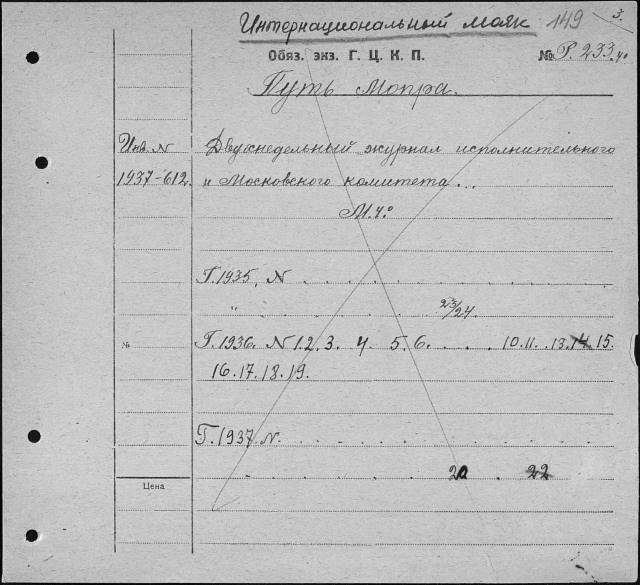 Интернациональный маяк 149 3.
Обяз. экз. Г. Ц. К. П. № Р. 233
Путь Мопра.
Инв. N Двухнедельный журнал исполнительного
1937-612. и Московского комитета...
М.ч°
Г. 1935, N
" 23/24.
№ Г. 1936. N 1. 2. 3. 4 5. 6. . . . 10. 11. 13. 14. 15.
16. 17. 18. 19.
Г. 1937 N.
20 . 22
Цена